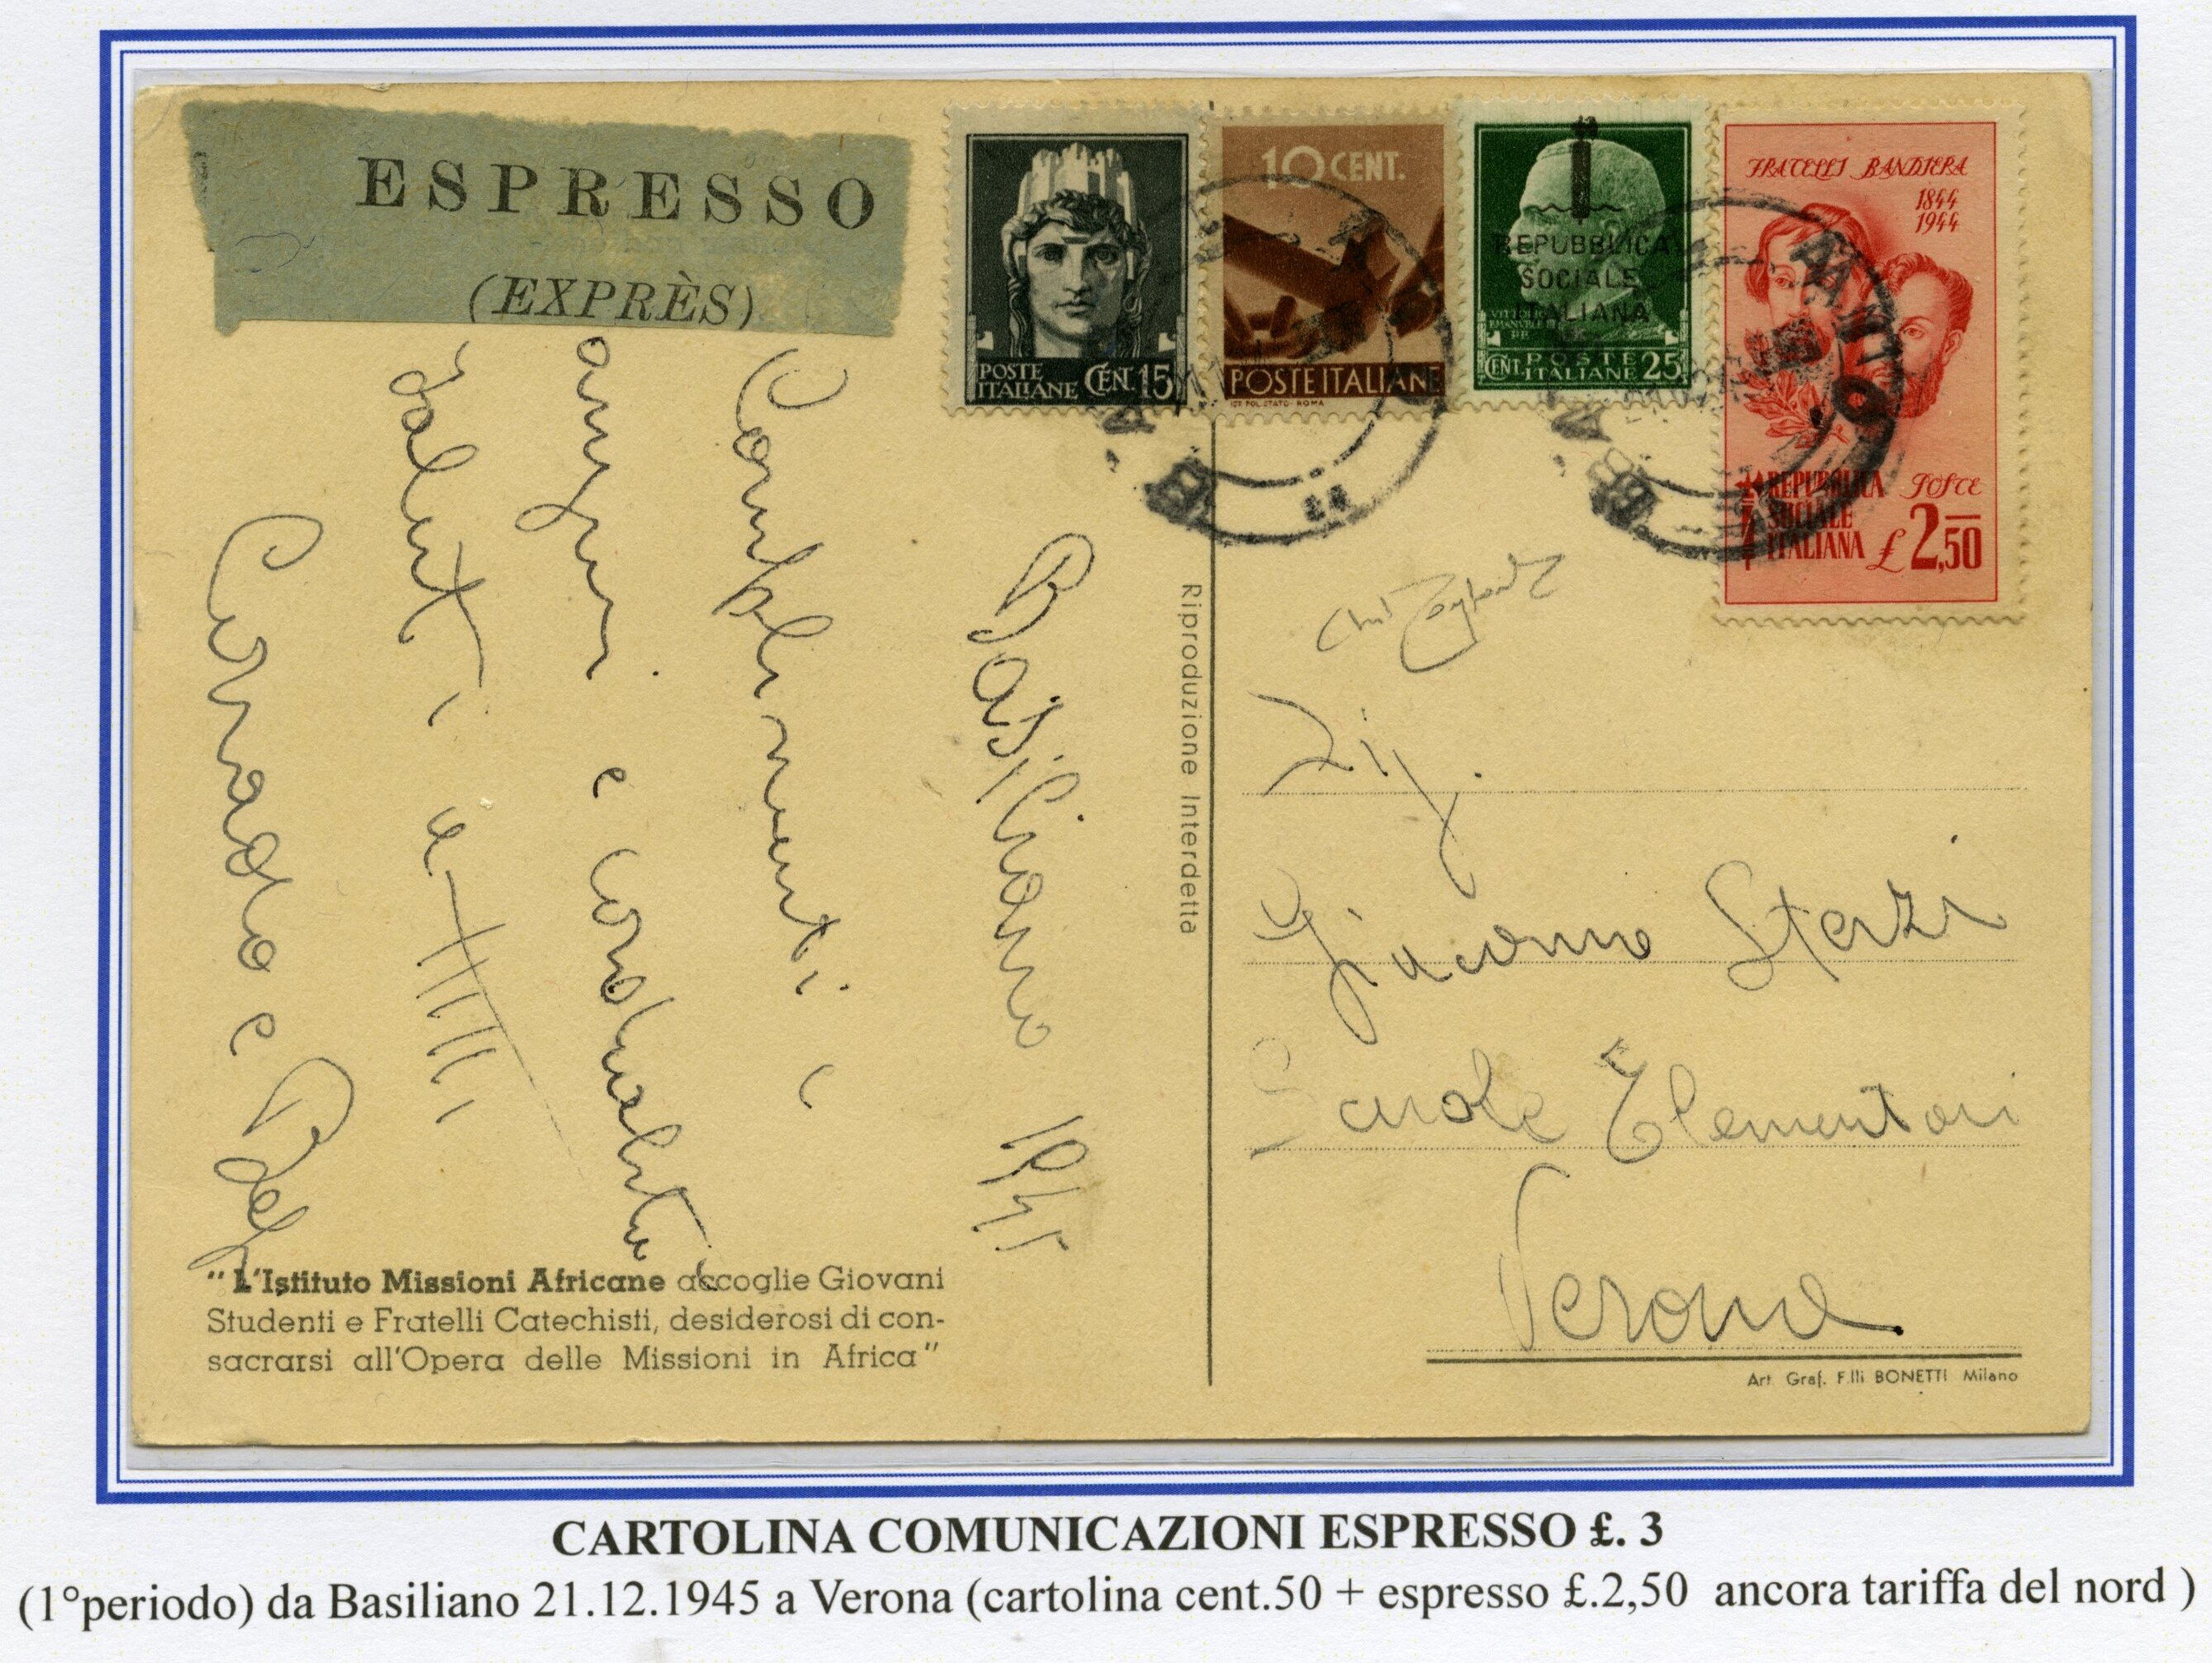 ESPRESSO
(EXPRÈS)
POSTE
ITALIANE CEN. 15
10 CENT.
POSTE ITALIANE
IST. POL. STATO - ROMA
REPUBBLICA
SOCIALE
ITALIANA
VITTORIO
EMANUELE III
RE
CENT. POSTE
ITALIANE 25
FRATELLI BANDIERA
1844
1944
REPUBBLICA
SOCIALE
ITALIANA
POSTE
£ 2,50
Basiliano 1945
Complimenti
auguri e cordialità
saluti a
Corrado e
Riproduzione Interdetta
Sig.
Giacomo Sterzi
Scuole Elementari
Verona
"L'Istituto Missioni Africane accoglie Giovani
Studenti e Fratelli Catechisti, desiderosi di con-
sacrarsi all'Opera delle Missioni in Africa"
Art. Graf. F.lli BONETTI Milano
CARTOLINA COMUNICAZIONI ESPRESSO £. 3
(1°periodo) da Basiliano 21.12.1945 a Verona (cartolina cent.50 + espresso £.2,50 ancora tariffa del nord )